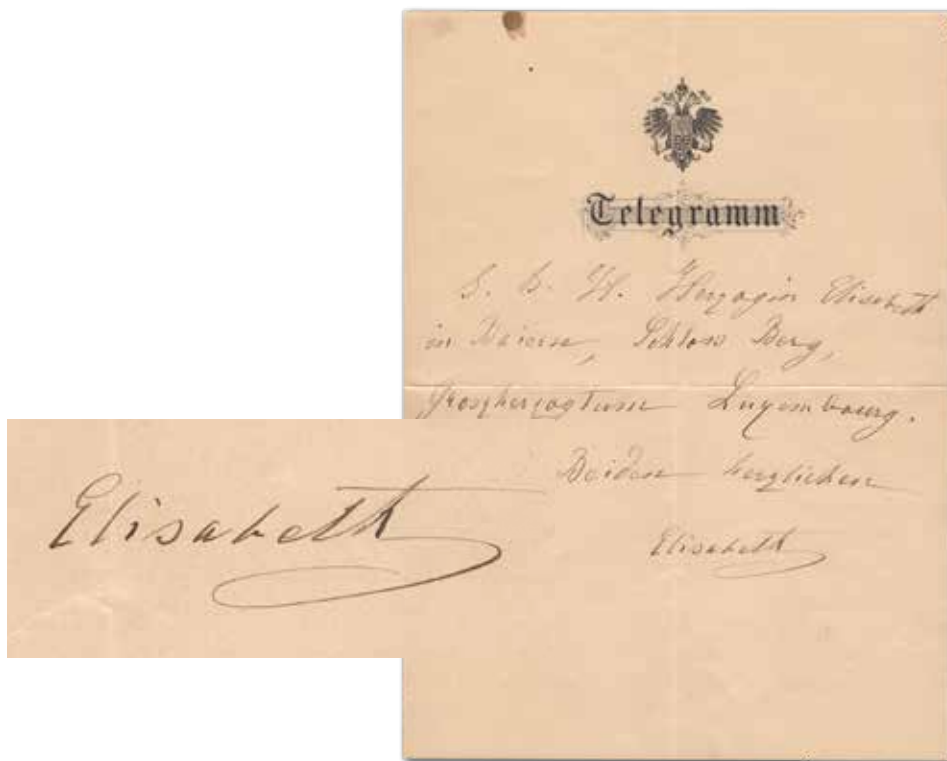 Telegramm
I. K. H. Herzogin Elisabeth
in Baiern, Schloss Berg,
Groszherzogtum Luxembourg.
Beiden herzlichen
Elisabeth
Elisabeth